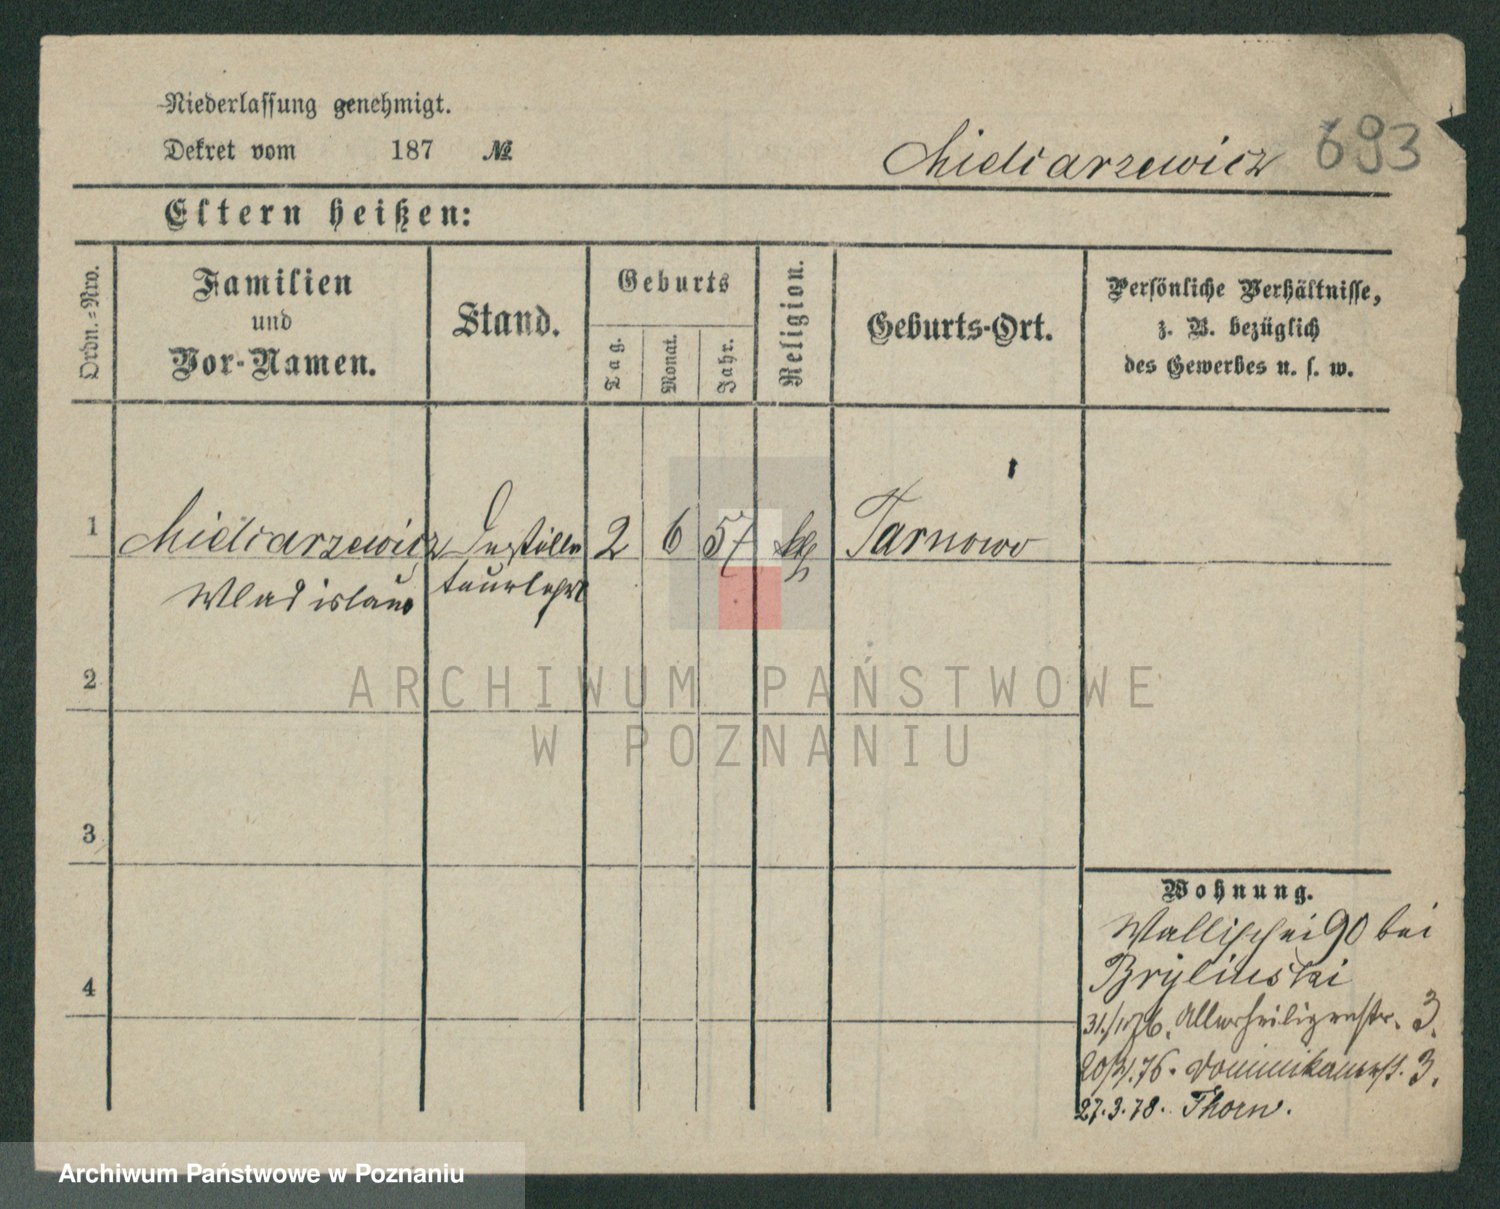 Niederlassung genehmigt.
Dekret vom 187 №
Miedzarzewicz 693
Eltern heißen:
Ordn.=Nro.
Familien
und
Vor-Namen.
Stand.
Geburts
Tag.
Monat.
Jahr.
Religion.
Geburts-Ort.
Persönliche Verhältnisse,
z. B. bezüglich
des Gewerbes u. s. w.
1 2 6 57 Tarnowo
Wladislaus
2
3
4
Wohnung.
Wallischei 90 bei
Brylinski
Allerheiligenstr. 3.
Dominikanerst. 3.
27.3.78. Thorn.
ARCHIWUM PAŃSTWOWE
W POZNANIU
Archiwum Państwowe w Poznaniu